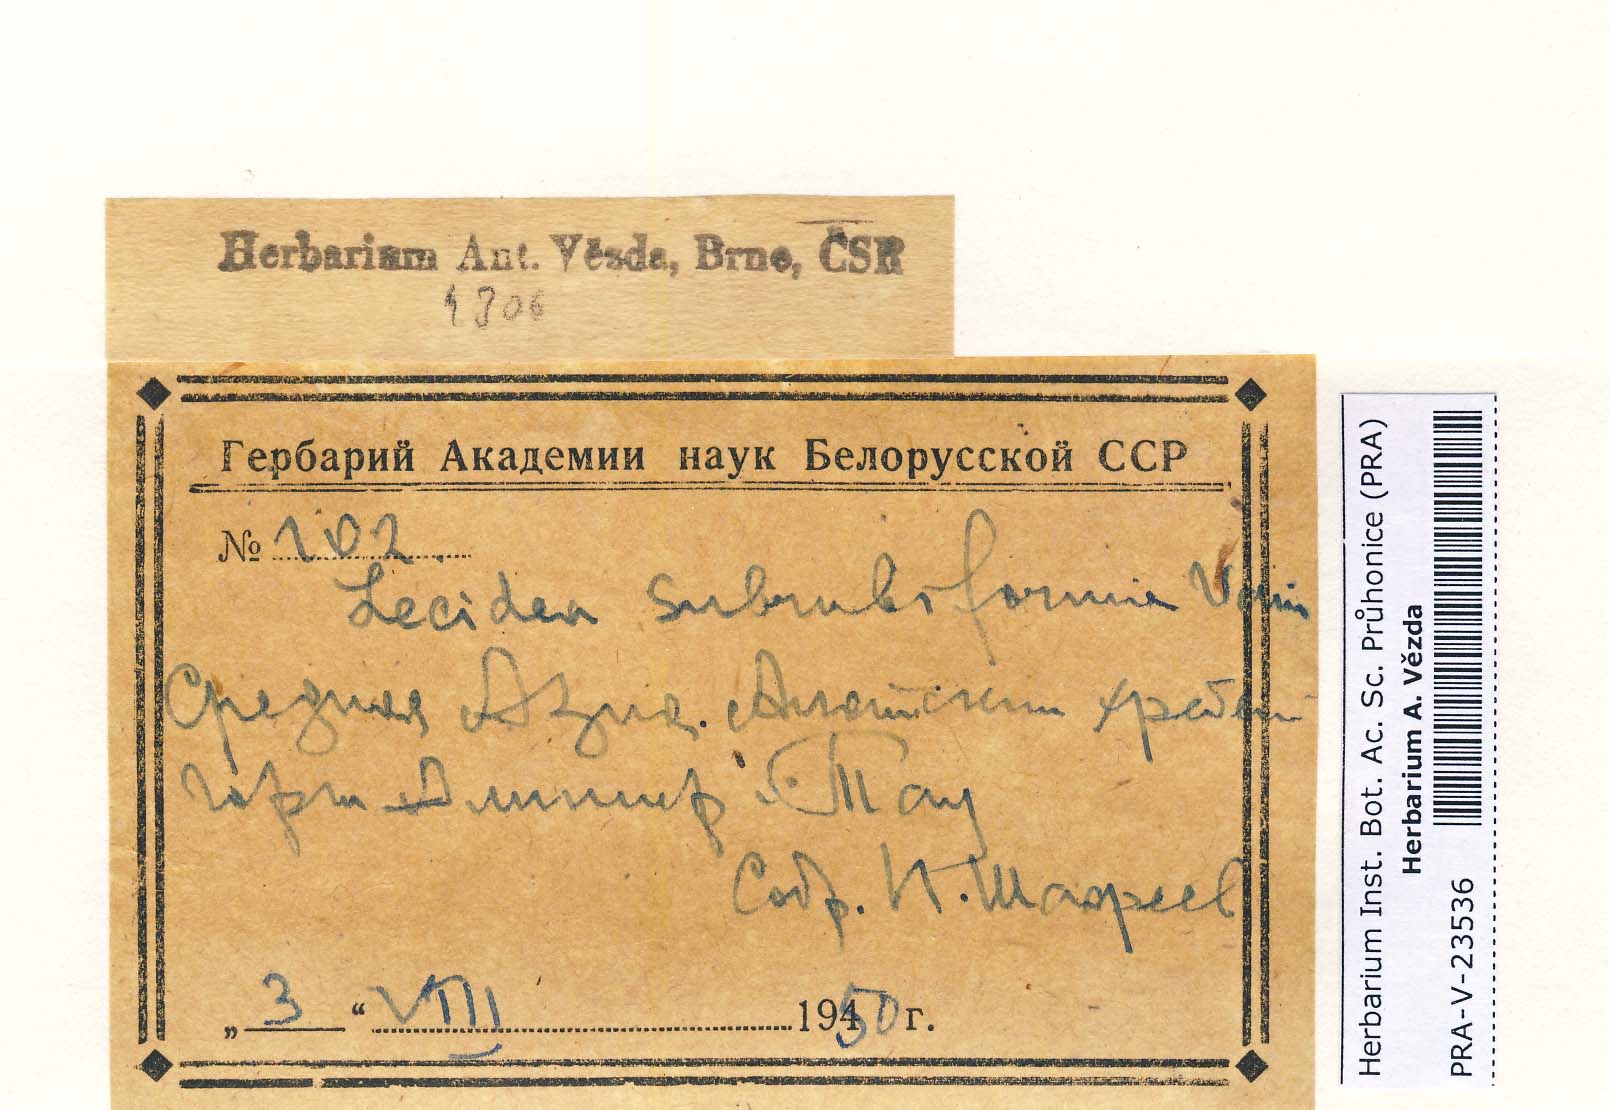 Herbarium Ant. Vězda, Brno, ČSR
Гербарий Академии наук Белорусской ССР
№ 102
Lecidea Vain
Средняя Азия. Алайский хребет
гора Тау
Собр. И. Шафеев
„3“ VIII 1950 г.
Herbarium Inst. Bot. Ac. Sc. Průhonice (PRA)
Herbarium A. Vězda
PRA-V-23536